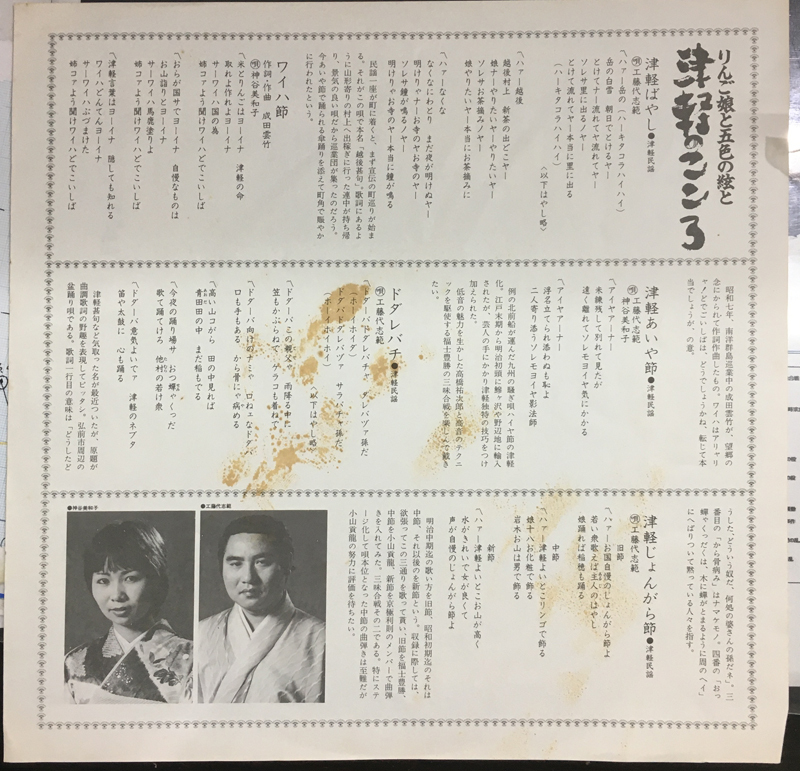 りんご娘と五色の絃と
津軽のこころ
津軽ばやし●津軽民謡
唄工藤代志範
〽ハァー岳の（ハーキタコラハイハイ）
岳の白雪　朝日でとけるヤー
とけてナー流れてヤ流れてヤー
ソレサ里に出るノヤー
とけて流れてヤー本当に里に出る
（ハーキタコラハイハイ）　〈以下はやし略〉
〽ハァー越後
越後村上　新茶の出どこヤー
娘ナーやりたいヤーやりたいヤー
ソレサお茶摘みノヤー
娘やりたいヤー本当にお茶摘みに
〽ハァーなくな
なくなにわとり　まだ夜が明けぬヤー
明けりゃナーお寺のヤお寺のヤー
ソレサ鐘が鳴るヤー
明けりゃお寺のヤー本当に鐘が鳴る
民謡一座が町に着くと、まず宣伝の町巡りが始ま
る。それがこの唄で本名「越後甚句」。歌詞にあるよ
うに山形寄りの村上へ出稼ぎに行った連中が持ち帰
り、景気の良い唄だから巡業団が集ったのだろう。
今あいや節で踊られる傘踊りを添えて町角で賑やか
に行われたという。
ワイハ節
作詞・作曲　成田雲竹
唄神谷美和子
〽米とりんごはヨーイナ　津軽の命
取れよ作れよヨーイナ
サーワイハ国の為
姉コァよう聞けワイハどでごいしば
〽おらが国サでヨーイナ　自慢なものは
お山詣りとヨーイナ
サーワイハ馬鹿塗りよ
姉コァよう聞けワイハどでごいしば
〽津軽言葉はヨーイナ　隠しても知れる
ワイハどんてんヨーイナ
サーワイハぶづまけた
姉コァよう聞けワイハどでごいしば
昭和七年、南洋群島巡業中の成田雲竹が、望郷の
念にかられて作詞作曲したもの。ワイハはアリャリ
ャ！どでごいしばは、どうでしょうかね、転じて本
当でしょうが、の意。
津軽あいや節●津軽民謡
唄工藤代志範
神谷美和子
〽アイヤアーナー
未練残して別れて見たが
遠く離れてソレモヨイヤ気にかかる
〽アイヤアーナー
浮名立てられ添わぬも恥よ
二人寄り添うソレモヨイヤ影法師
例の北前船が運んだ九州の騒ぎ唄ハイヤ節の津軽
化。江戸末期から明治初頭に鰺ヶ沢や野辺地に輸入
されたが、芸人の手にかかり津軽独特の技巧をつけ
加えられた。
低音の魅力を生かした高橋祐次郎と高音のテクニ
ックを駆使する福士豊勝の三味合戦を楽しんで戴き
たい。
ドダレバチ●津軽民謡
唄工藤代志範
〽ドダーバドダレバチャ　ダレバヅァ孫だ
（ホーイホイダ）
ドダバドダレバヅァ　サライチャ孫だ
（ホーイホイホイ）　〈以下はやし略〉
〽ドダーバこの親父ァ　雨降る中に
笠もかぶらねで　ケラコも着ねで
〽ドダーバ向けのナミャ　口ねェなドダバ
口も手もある　から骨にゃ病める
〽高い山コがら　田の中見れば
青田田の中　まだ稲もでる
〽今夜の踊り場サ　おつ蟬ゃくつだ
歌て踊てけろ　他村の若け衆
〽ドダーバ意気よいでァ　津軽のネブタ
笛や太鼓に　心も踊る
津軽甚句など気取った名が最近ついたが、原題が
曲調歌詞の野趣を表現してピッタシ。弘前市周辺の
盆踊り唄である。歌詞一行目の意味は「どうしたど
うした、どういう奴だ、何処の婆さんの孫だネ」、三
番目の「から骨病み」はナマケモノ。四番の「おっ
蟬ゃくつだ」は、木に蟬がとまるように周の「ヘイ」
にへばりついて黙っている人々を指す。
津軽じょんがら節●津軽民謡
唄工藤代志範
旧節
〽ハァーお国自慢のじょんがら節よ
若い衆歌えば主人のはやし
娘踊れば稲穂も踊る
中節
〽ハァー津軽よいとこリンゴで飾る
娘十八お化粧で飾る
岩木お山は男で飾る
新節
〽ハァー津軽よいとこお山が高く
水がきれいで女が良くて
声が自慢のじょんがら節よ
明治中期迄の歌い方を旧節、昭和初期迄のそれは
中節、それ以後のを新節という。収録に際しては、
欲張ってこの三通りを歌って貰い、旧節を福士豊勝、
中節を小山貢龍、新節を京極利則のメンバーで曲弾
きを入れてみた。三味合戦その二である。特にステ
ージ化して唄本位となった中節の曲弾きは至難だが
小山貢龍の努力に評価を待ちたい。
●工藤代志範
●神谷美和子